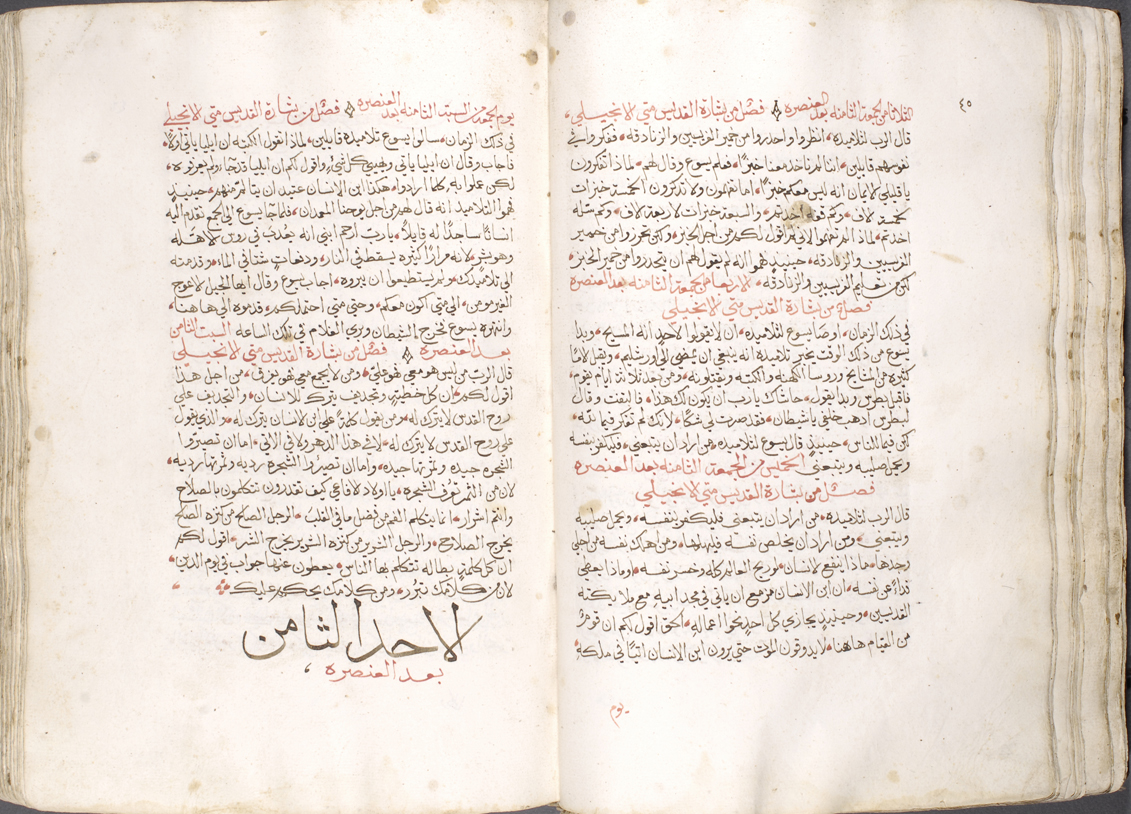 ٤٥
الثلاثا من الجمعة الثامنه بعد العنصره فصل من بشارة القديس متي الانجيلي
قال الرب لتلاميذه انظروا واحدروا من خمير الفريسيين والزنادقه ففكروا في
نفوسهم قايلين اننا لم ناخد معنا خبزًا فعلم يسوع وقال لهم لماذا تفكرون
يا قليلي الايمان انه ليس معكم خبزًا اما تفهمون ولا تذكرون الخمسة خبزات
لخمسة الاف وكم قفه اخدتم والسبعة خبزات لاربعة الاف وكم سله
اخدتم لماذا لم تفهموا لاني لم اقول لكم من اجل الخبز ولكن تحرزوا من خمير
الفريسيين والزنادقه حينيذٍ فهموا انه لم يقول لهم ان يتحدروا من خمير الخبز
لكن من تعليم الفريسيين والزنادقه الاربعا من جمعة الثامنه بعد العنصره
فصل من بشارة القديس متي الانجيلي
في ذلك الزمان اوصا يسوع لتلاميده ان لا يقولوا لاحدٍ انه المسيح وبدا
يسوع من ذلك الوقت يخبر تلاميذه انه ينبغي ان يمضي الي اورشليم ويقبل الامًا
كثيره من المشايخ وروسا الكهنه والكتبه ويقتلونه ومن بعد ثلاثة ايام يقوم
فاقبل بطرس وبدا يقول حاشاك يا رب ان يكون لك هذا فالتفت وقال
لبطرس ادهب خلفي يا شيطان فقد صرت لي شكًا لانك لم تفكر فيما لله
لكن فيما للناس حينيذٍ قال يسوع لتلاميذه من اراد ان يتبعني فليكفر بنفسه
ويحمل صليبه ويتبعني الخميس من الجمعة الثامنه بعد العنصره
فصل من بشارة القديس متي الانجيلي
قال الرب لتلاميذه من اراد ان يتبعني فليكفر بنفسه ويحمل صليبه
ويتبعني ومن اراد ان يخلص نفسه فليهلكها ومن اهلك نفسه من اجلي
وجدها ماذا ينفع الانسان لو ربح العالم كله وخسر نفسه او ماذا يعطي
فداءً عن نفسه ان ابن الانسان مزمع ان ياتي في مجد ابيه مع ملايكته
القديسين وحينيذٍ يجازي كل احدٍ نحو اعماله الحق اقول لكم ان قومًا
من القيام هاهنا لا يدوقون الموت حتي يرون ابن الانسان اتيًا في ملكه
يوم
يوم الجمعه من السبة الثامنه بعد العنصره فصل من بشارة القديس متي الانجيلي
في ذلك الزمان سالوا يسوع تلاميذه قايلين لماذا تقول الكتبه ان ايليا ياتي اولًا
فاجاب وقال ان ايليا ياتي ويهيي كل شيءٍ واقول لكم ان ايليا قد جا ولم يعرفوه
لكن عملوا به كلما ارادوا هكذا ابن الانسان عتيد ان يتالم منهم حينيذٍ
فهموا التلاميذ انه قال لهم من اجل يوحنا المعمدان فلما جا يسوع الي الجمع تقدم اليه
انسانًا ساجدًا له قايلًا يا رب ارحم ابني انه يعدب في روس الاهله
وهو يشر لانه مرارًا كثيره يسقط في النار ودفعات شتا في الماء وقدمته
الي تلاميدك ولم يستطيعوا ان يبروه اجاب يسوع وقال ايها الجيل الاعوج
الغير مومن الي متي اكون معكم وحتي متي احتملكم قدموه الي هاهنا
وانتهره يسوع فخرج الشيطان وبري الغلام في تلك الساعه السبت الثامن
بعد العنصره فصل من بشارة القديس متي الانجيلي
قال الرب من ليس هو معي فهو علي ومن لا يجمع معي فهو يفرق من اجل هذا
اقول لكم ان كل خطيةٍ وتجديف يترك للانسان والتجديف علي
روح القدس لا يترك له ومن يقول كلمةً علي ابن الانسان يترك له والذي يقول
علي روح القدس لا يترك له لا في هذا الدهر ولا في الاتي اما ان تصيروا
الشجره جيده وثمرتها جيده واما ان تصيروا الشجره رديه وثمرتها رديه
لان من الثمر تعرف الشجره يا اولاد الافاعي كيف تقدرون تتكلمون بالصلاح
وانتم اشرار انما يتكلم الفم من فضل ما في القلب الرجل الصالح من كنزه الصالح
يخرج الصلاح والرجل الشرير من كنزه الشرير يخرج الشر اقول لكم
ان كل كلمةٍ بطاله تتكلم بها الناس يعطون عنها جواب في يوم الدين
لان من كلامك تتبرر ومن كلامك يحكم عليك
الاحد الثامن
بعد العنصره